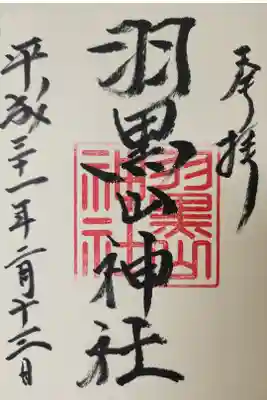 奉拝
羽黒山神社
羽黒山
神社
平成三十一年二月十三日